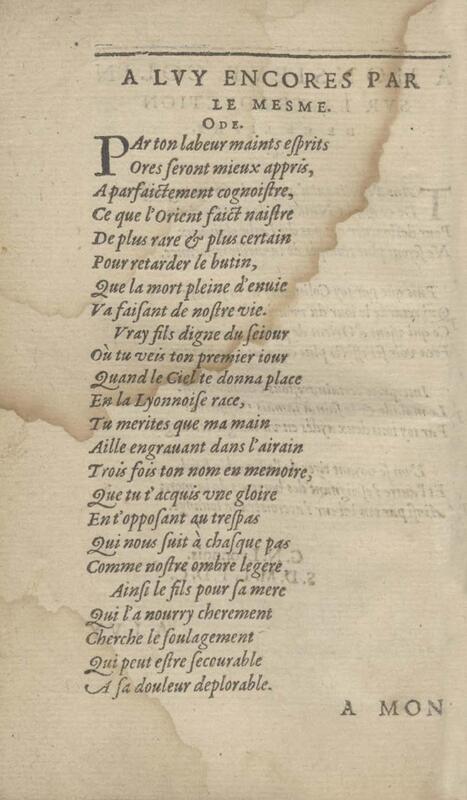 A LVY ENCORES PAR
LE MESME.
ODE.
PAr ton labeur maints eſprits
Ores ſeront mieux appris,
A parfaictement cognoiſtre,
Ce que l'Orient faict naiſtre
De plus rare & plus certain
Pour retarder le butin,
Que la mort pleine d'enuie
Va faiſant de noſtre vie.
Vray fils digne du ſeiour
Où tu veis ton premier iour
Quand le Ciel te donna place
En la Lyonnoiſe race,
Tu merites que ma main
Aille engrauant dans l'airain
Trois fois ton nom en memoire,
Que tu t'acquis vne gloire
En t'oppoſant au treſpas
Qui nous ſuit à chaſque pas
Comme noſtre ombre legere
Ainſi le fils pour ſa mere
Qui l'a nourry cherement
Cherche le ſoulagement
Qui peut eſtre ſecourable
A ſa douleur deplorable.
A MON